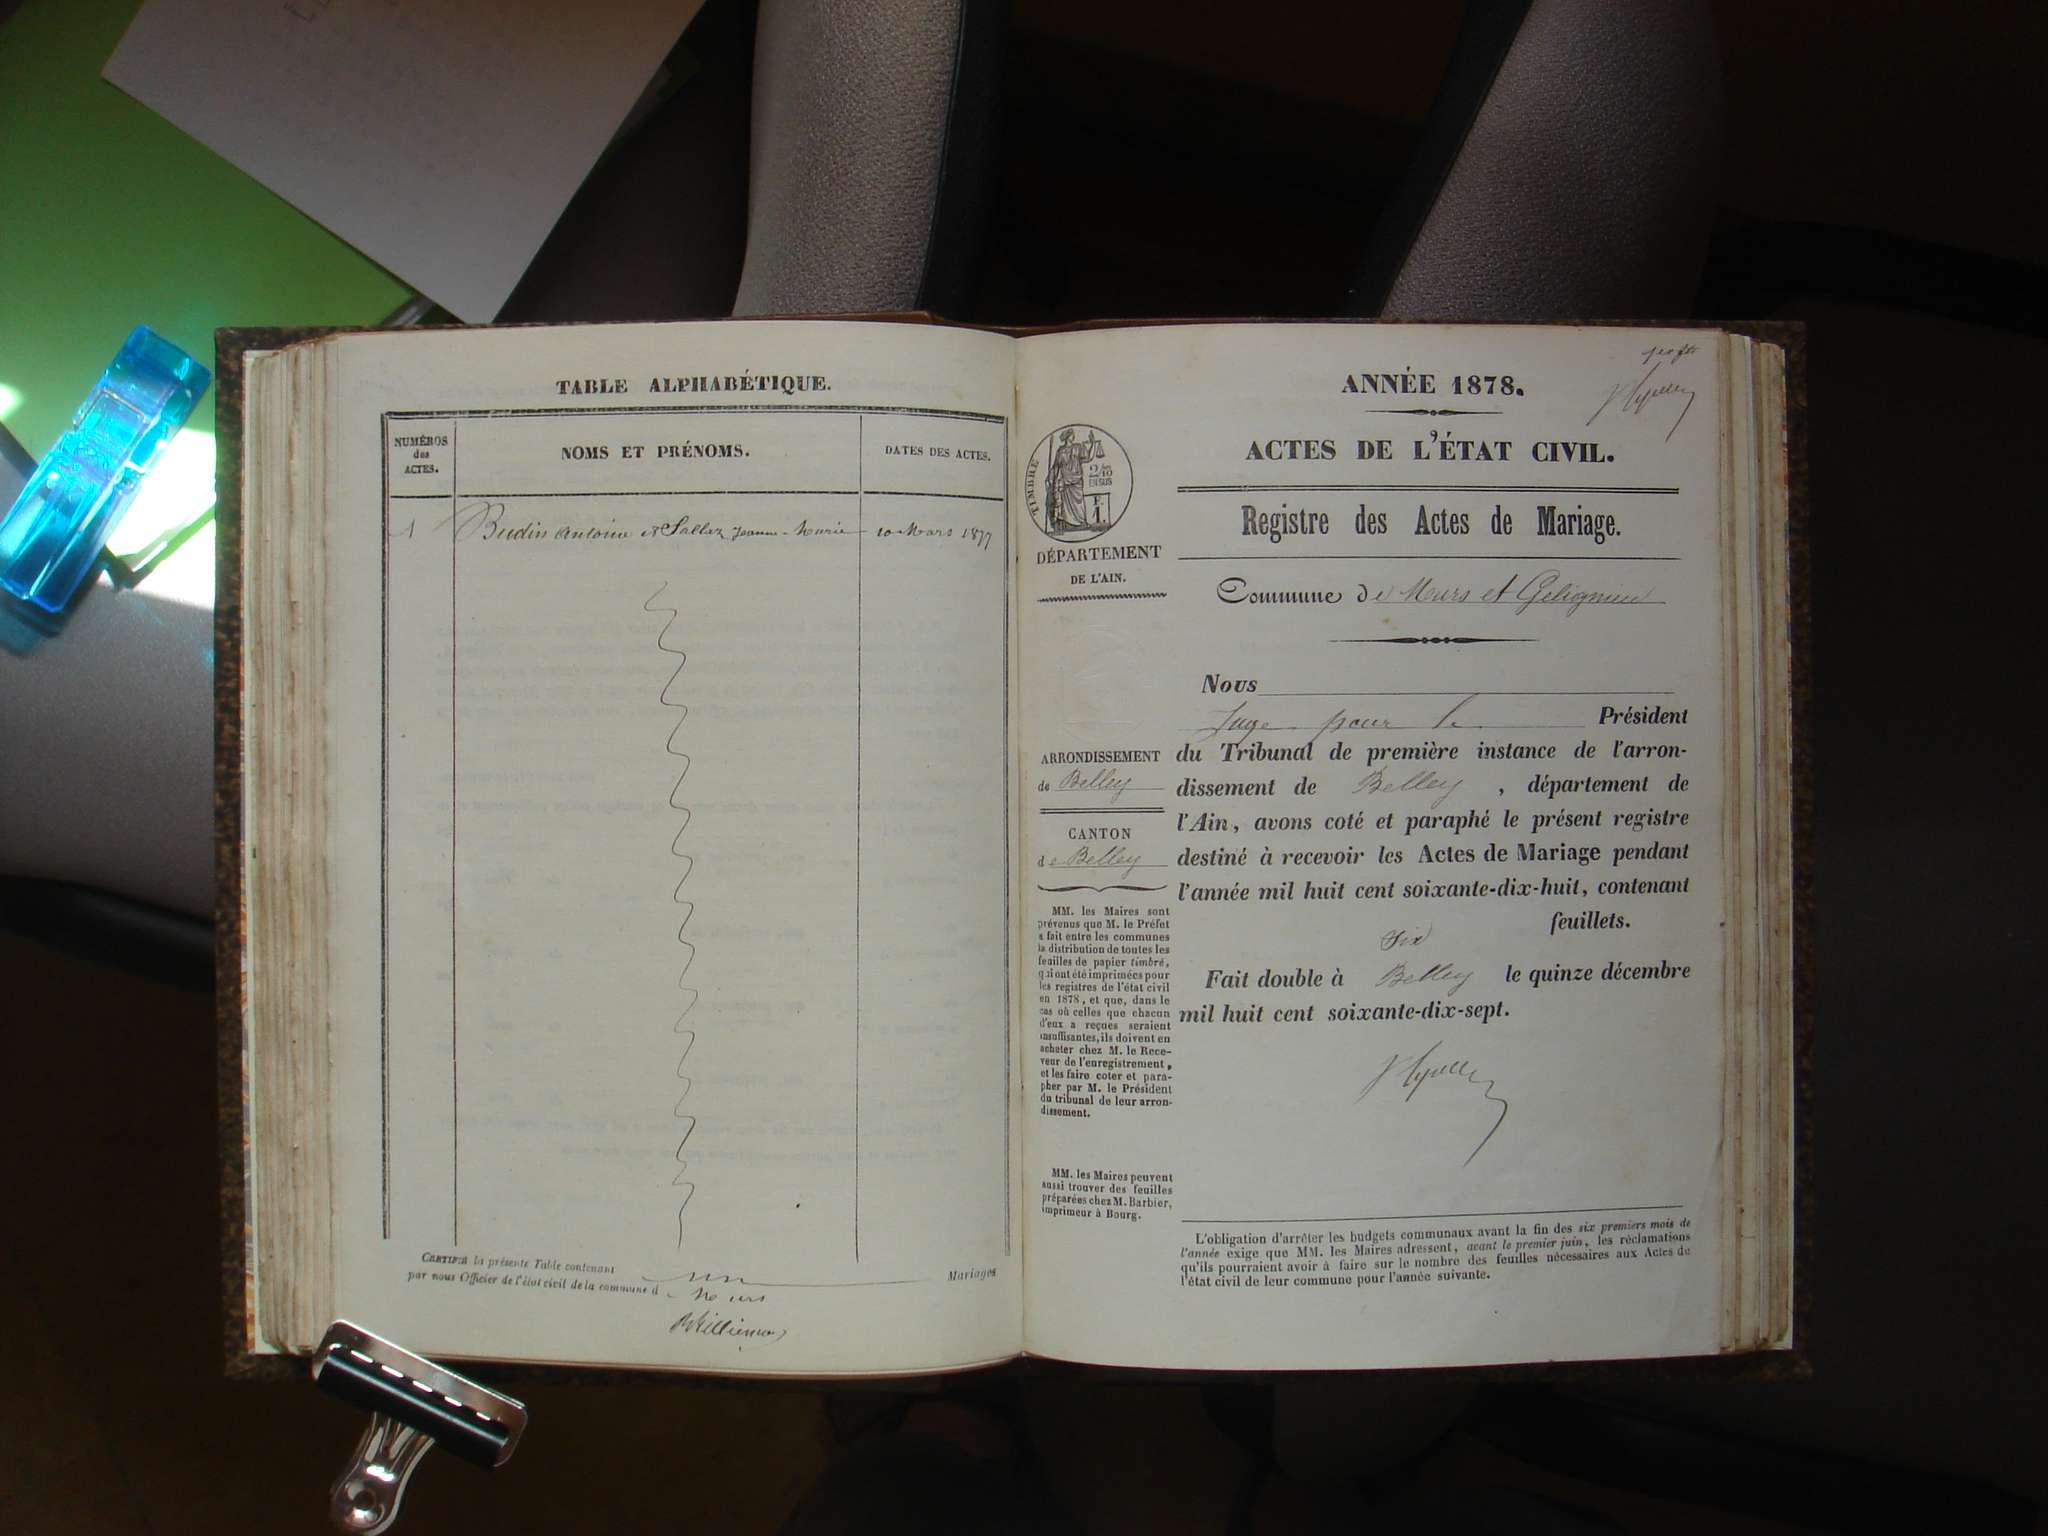 TABLE ALPHABÉTIQUE.
NUMÉROS
des
ACTES.
NOMS ET PRÉNOMS.
DATES DES ACTES.
1 Budin Antoine et Sallaz Jeanne-Marie 10 Mars 1877
CERTIFIÉ la présente Table contenant un Mariages
par nous Officier de l'état civil de la commune d Murs
ANNÉE 1878.
ACTES DE L'ÉTAT CIVIL.
Registre des Actes de Mariage.
Commune de Murs et Gelignieu
TIMBRE
2/10
EN SUS
F.
1.
DÉPARTEMENT
DE L'AIN.
ARRONDISSEMENT
de Belley
CANTON
de Belley
MM. les Maires sont
prévenus que M. le Préfet
a fait entre les communes
la distribution de toutes les
feuilles de papier timbré,
qui ont été imprimées pour
les registres de l'état civil
en 1878, et que, dans le
cas où celles que chacun
d'eux a reçues seraient
insuffisantes, ils doivent en
acheter chez M. le Rece-
veur de l'enregistrement,
et les faire coter et para-
pher par M. le Président
du tribunal de leur arron-
dissement.
MM. les Maires peuvent
aussi trouver des feuilles
préparées chez M. Barbier,
imprimeur à Bourg.
Nous
Juge pour le Président
du Tribunal de première instance de l'arron-
dissement de Belley, département de
l'Ain, avons coté et paraphé le présent registre
destiné à recevoir les Actes de Mariage pendant
l'année mil huit cent soixante-dix-huit, contenant
six feuillets.
Fait double à Belley le quinze décembre
mil huit cent soixante-dix-sept.
L'obligation d'arrêter les budgets communaux avant la fin des six premiers mois de
l'année exige que MM. les Maires adressent, avant le premier juin, les réclamations
qu'ils pourraient avoir à faire sur le nombre des feuilles nécessaires aux Actes de
l'état civil de leur commune pour l'année suivante.